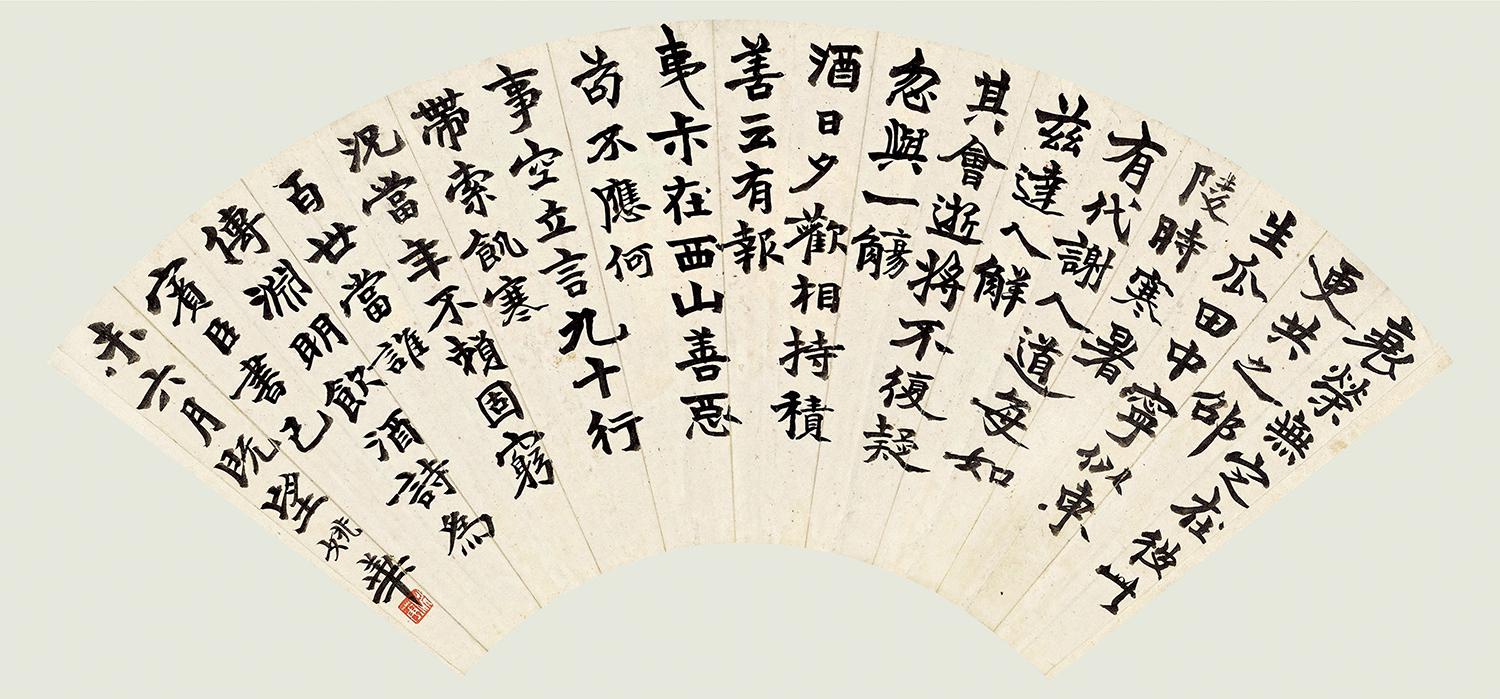 衰榮無定在彼此
更共之邵
生瓜田中寧似東
陵時寒暑
有代謝人道每如
茲達人解
其會逝將不復疑
忽與一觴
酒日夕歡相持積
善云有報
夷尗在西山善惡
苟不應何
事空立言九十行
帶索飢寒
況當年不賴固窮
百世當誰
傳淵明飲酒詩為
賓臣書己
未六月既望姚華